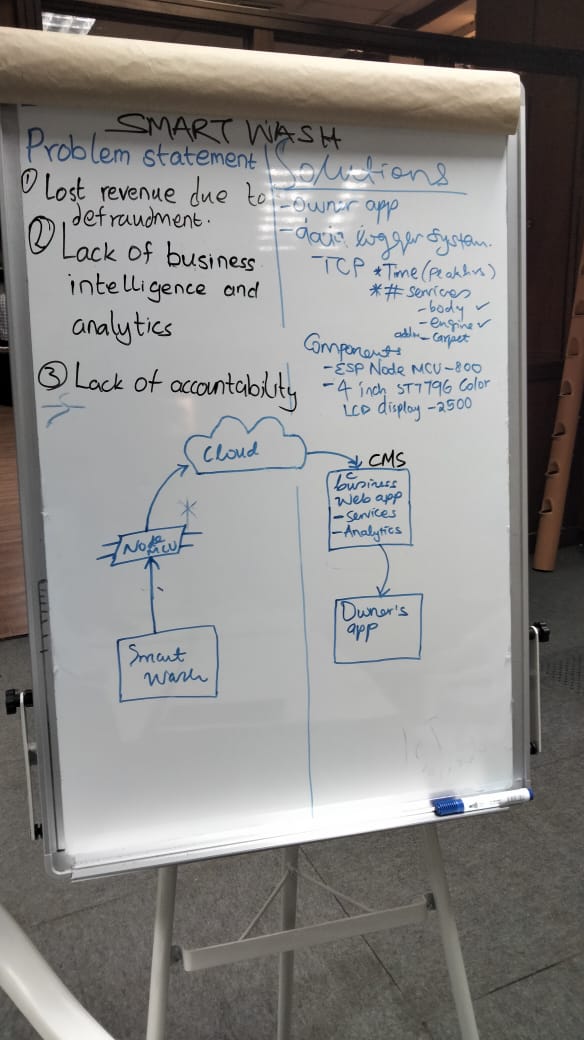 SMART WASH
Problem statement
① Lost revenue due to
defraudment.
② Lack of business
intelligence and
analytics
③ Lack of accountability
Solutions
- owner app
- data logger system.
- TCP * Time (peak hrs)
* # services
- body ✓
- engine ✓
- carpet
Components
- ESP Node MCU - 800
- 4 inch ST7796 Color
LCD display - 2500
Cloud
Node
MCU
Smart
Wash
CMS
business
Web app
- Services
- Analytics
Owner's
app